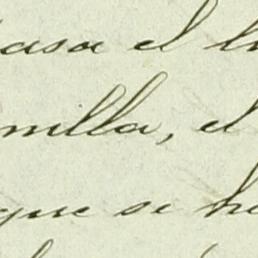 asa el
milla, el
que se